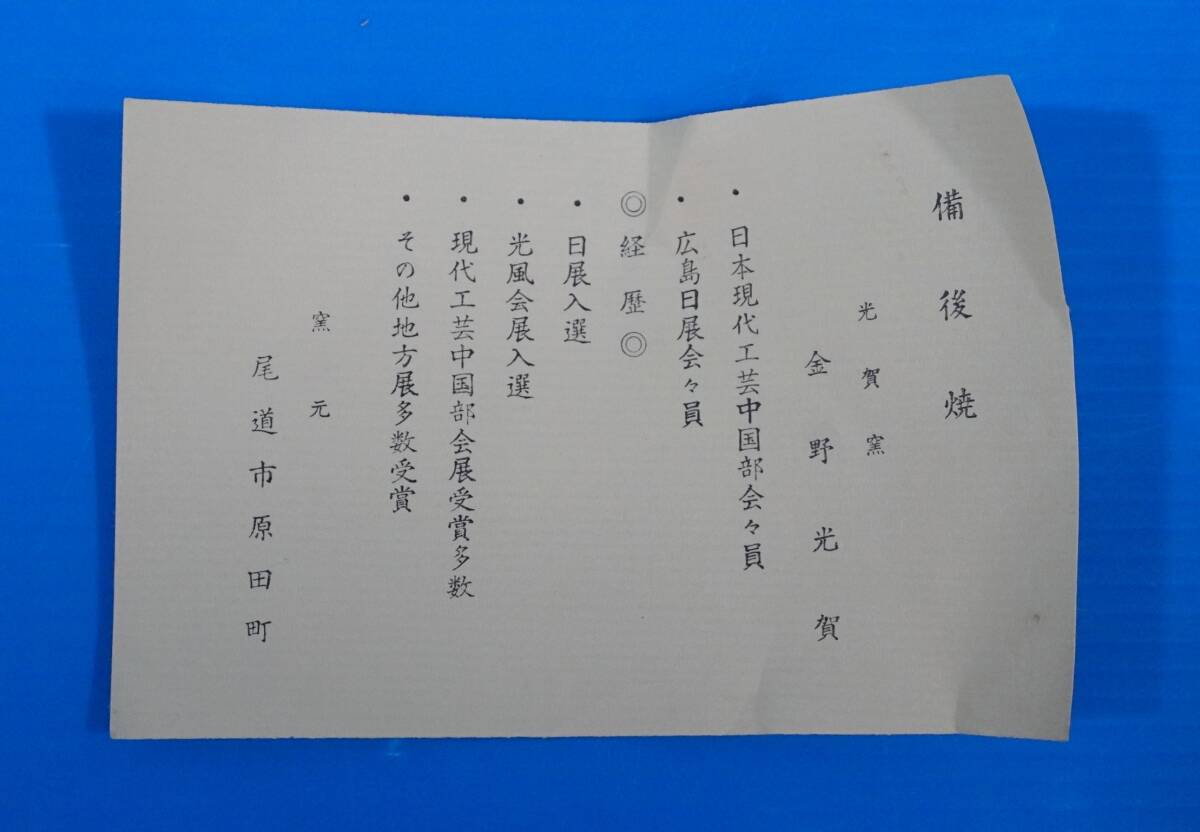 備後焼
光賀窯
金野光賀
・日本現代工芸中国部会々員
・広島日展会々員
◎経歴◎
・日展入選
・光風会展入選
・現代工芸中国部会展受賞多数
・その他地方展多数受賞
窯元
尾道市原田町